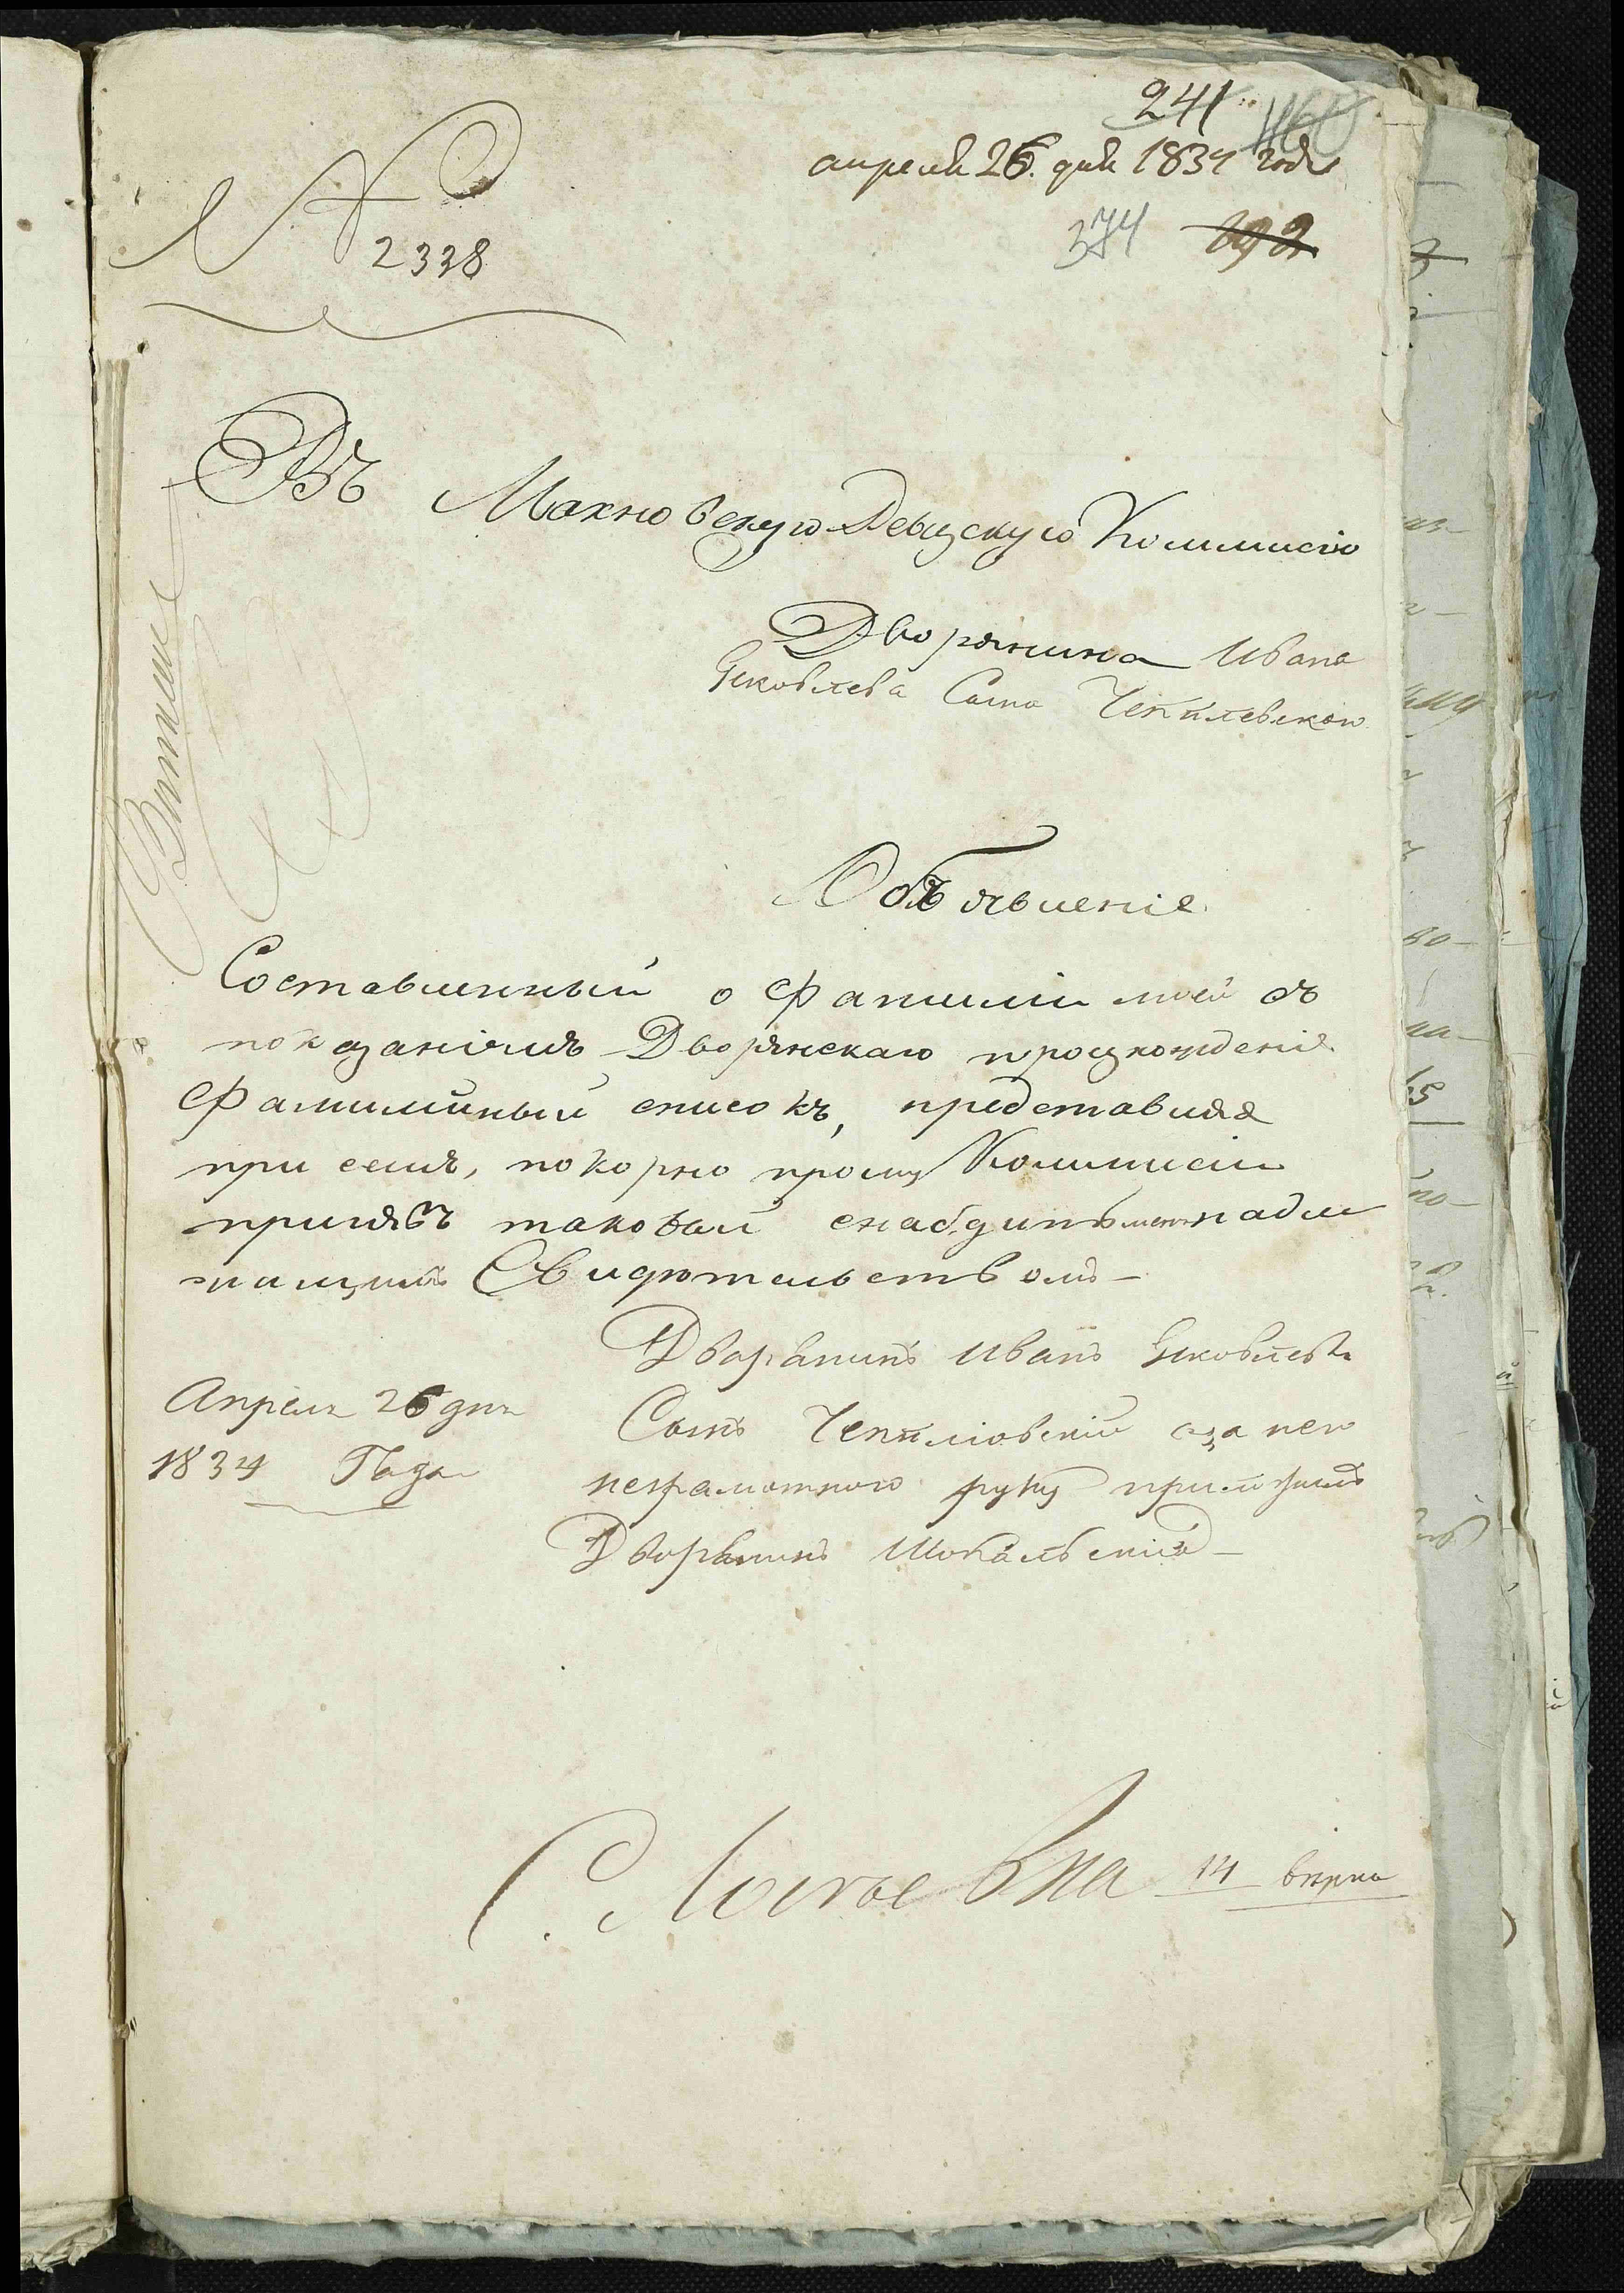 241
апреля 26. дня 1834 года
374 292
№ 2338
Въ Махновскую Ревизскую Коммисію
Дворянина Ивана
Яковлева Сына Чепилевскаго
Объявленіе
Составленный о фамиліи моей съ
показаніемъ Дворянскаго произхожденія
Фамилійный списокъ, представляя
при семъ, покорно прошу Коммисіи
принявъ таковый снабдить меня надле
жащимъ Свидѣтельствомъ
Дворянинъ Иванъ Яковлевъ
Сынъ Чепилiовскій а за него
неграмотного руку приложилъ
Дворянинъ
Апреля 26 дня
1834 Года